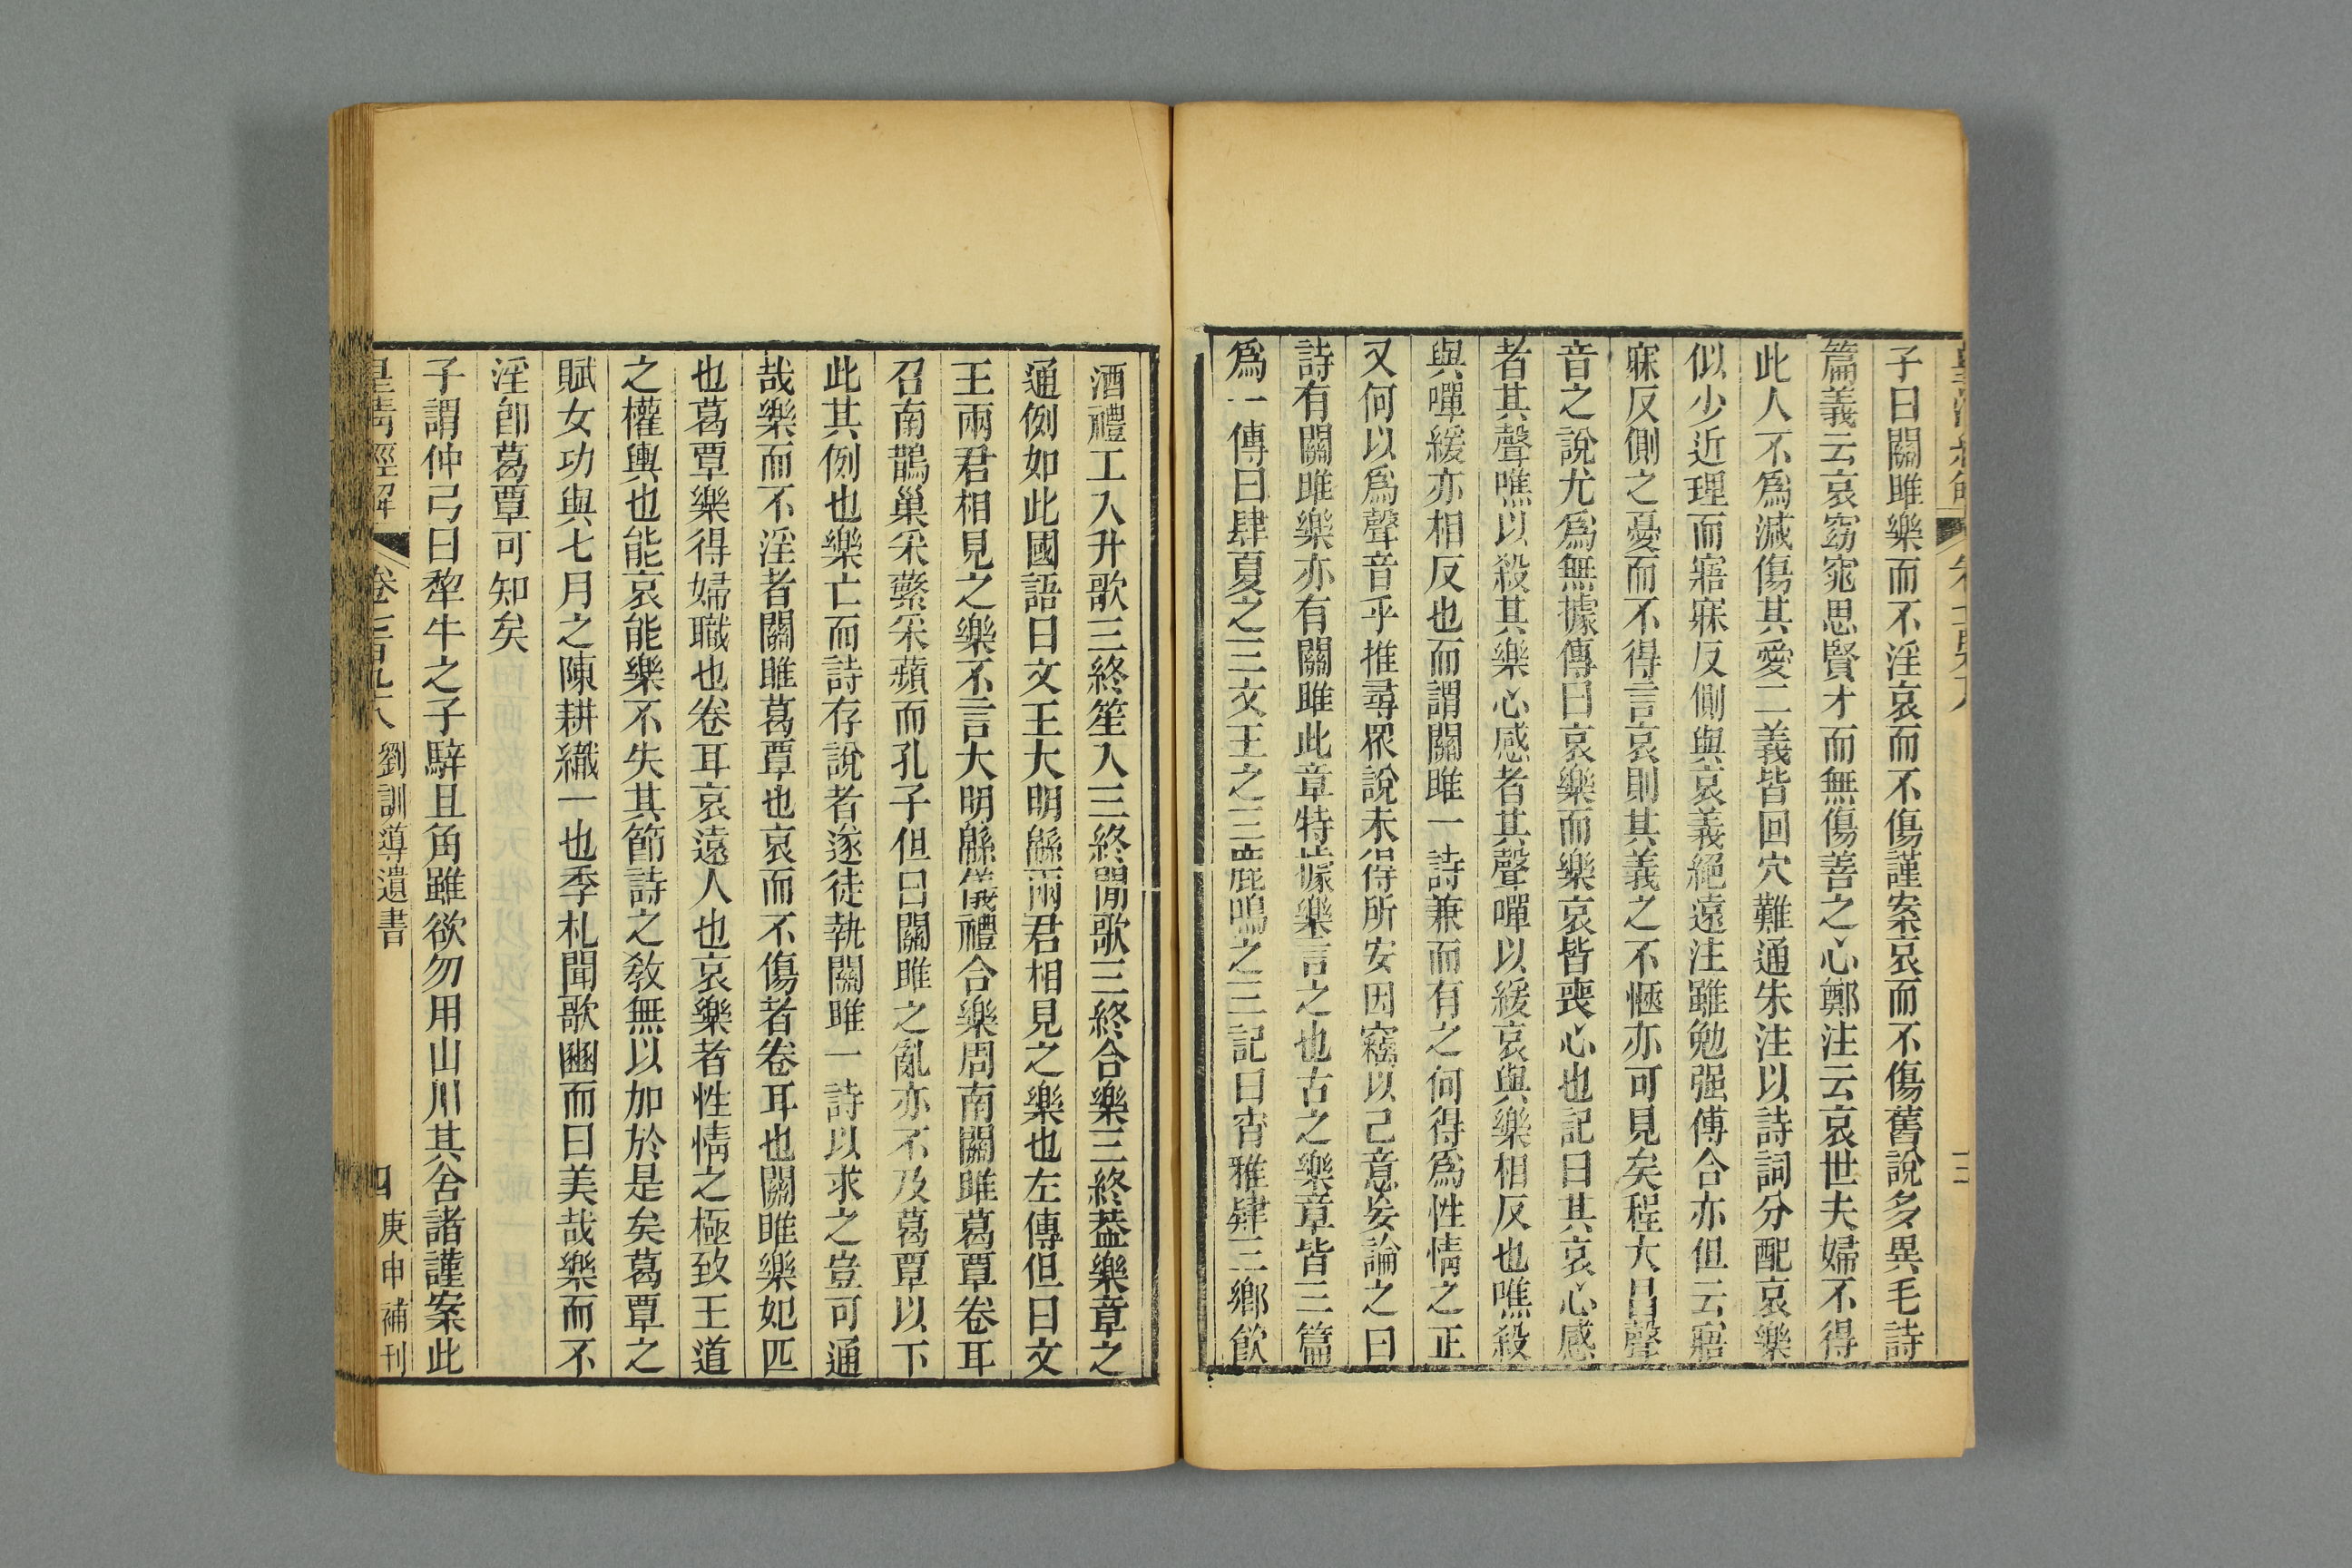 子曰關雎樂而不淫哀而不傷謹案哀而不傷舊說多異毛詩
篇義云哀窈窕思賢才而無傷善之心鄭注云哀世夫婦不得
此人不爲減傷其愛二義皆回穴難通朱注以詩詞分配哀樂
似少近理而寤寐反側與哀義絕遠注雖勉强傅合亦但云寤
寐反側之憂而不得言哀則其義之不愜亦可見矣程大昌聲
音之說尤爲無據傳曰哀樂而樂哀皆喪心也記曰其哀心感
者其聲噍以殺其樂心感者其聲嘽以緩哀與樂相反也噍殺
與嘽緩亦相反也而謂關雎一詩兼而有之何得爲性情之正
又何以爲聲音乎推尋衆說未得所安因竊以己意妄論之曰
詩有關雎樂亦有關雎此章特據樂言之也古之樂章皆三篇
爲一傳曰肆夏之三文王之三鹿鳴之三記曰宵雅肄三鄉飲
酒禮工入升歌三終笙入三終閒歌三終合樂三終葢樂章之
通例如此國語曰文王大明緜兩君相見之樂也左傳但曰文
王兩君相見之樂不言大明緜儀禮合樂周南關雎葛覃卷耳
召南鵲巢采蘩采蘋而孔子但曰關雎之亂亦不及葛覃以下
此其例也樂亡而詩存說者遂徒執關雎一詩以求之豈可通
哉樂而不淫者關雎葛覃也哀而不傷者卷耳也關雎樂妃匹
也葛覃樂得婦職也卷耳哀遠人也哀樂者性情之極致王道
之權輿也能哀能樂不失其節詩之敎無以加於是矣葛覃之
賦女功與七月之陳耕織一也季札聞歌豳而曰美哉樂而不
淫卽葛覃可知矣
子謂仲弓曰犂牛之子騂且角雖欲勿用山川其舍諸謹案此
皇淸經解 卷七百九十八 劉訓導遺書 四 庚申補刊